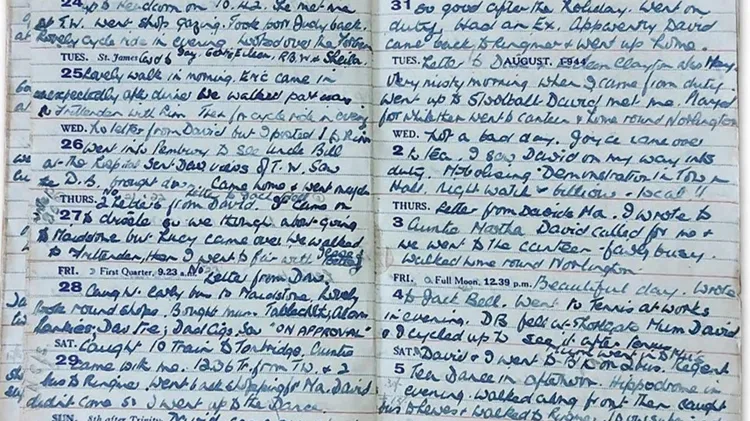 24 up to Headcorn on 10.42. She met me
at T.W. went shop gazing. Took poor Judy back.
Lovely cycle ride in evening
TUES. St. James Card to Eileen, R.B.W. & Sheila.
25 Lovely walk in morning. Eric came in
unexpectedly after dinner We walked part way
to Frittenden with him Then for cycle ride in evening
WED. No letter from David but I posted 1 to him
26 Went into Pembury to see Uncle Bill
at the Hospital Sent Dav views of T.W. Saw
the D.B. brought Came home & went
THURS. No Letter from David. It came on
27 to drizzle so we thought about going
to Maidstone but Lucy came over We walked
to Frittenden, then I went to fair with
FRI. First Quarter, 9.23 a.m. No Letter from Dav.
28 Caught early bus to Maidstone. Lovely
look round shops. Bought Mum Tablecloth; Alan
hankies; Dav tie; Dad Cigs. Saw "ON APPROVAL"
SAT. Caught 10 train to Tonbridge, Auntie
29 came with me. 12.36 Tr. from T.W. & 2
bus to Ringmer. Went back shopping for Ma. David
didn't come so I went up to the Dance.
SUN. 8th after Trinity David came
31 So good after the holiday. Went on
duty. Had an Ex. Apparently David
came back to Ringmer & went up home.
TUES. Letter to Clayton also Mary.
AUGUST, 1944
1 Very misty morning when I came from duty.
went up to Stoolball David met me. Played
for while then went to canteen & home round Norlington
WED. Not a bad day. Joyce came over
2 to tea. I saw David on my way into
duty. Mobolising Demonstration in Town
Hall. Night watch & billion - local!!
THURS. Letter from David's Ma. I wrote to
3 Auntie Martha David called for me &
we went to the canteen - fairly busy.
Walked home round Norlington.
FRI. Full Moon, 12.39 p.m. Beautiful day. Wrote
4 to Jack Bell. Went to Tennis at works
in evening. DB fell at Shortgate Mum David
& I cycled up to see it after tennis
SAT. David & I went to B'ton on 2 bus. Regent
5 Tea Dance in afternoon. Hippodrome in
evening. Walked along front then caught
bus to Lewes & walked to Ringmer.